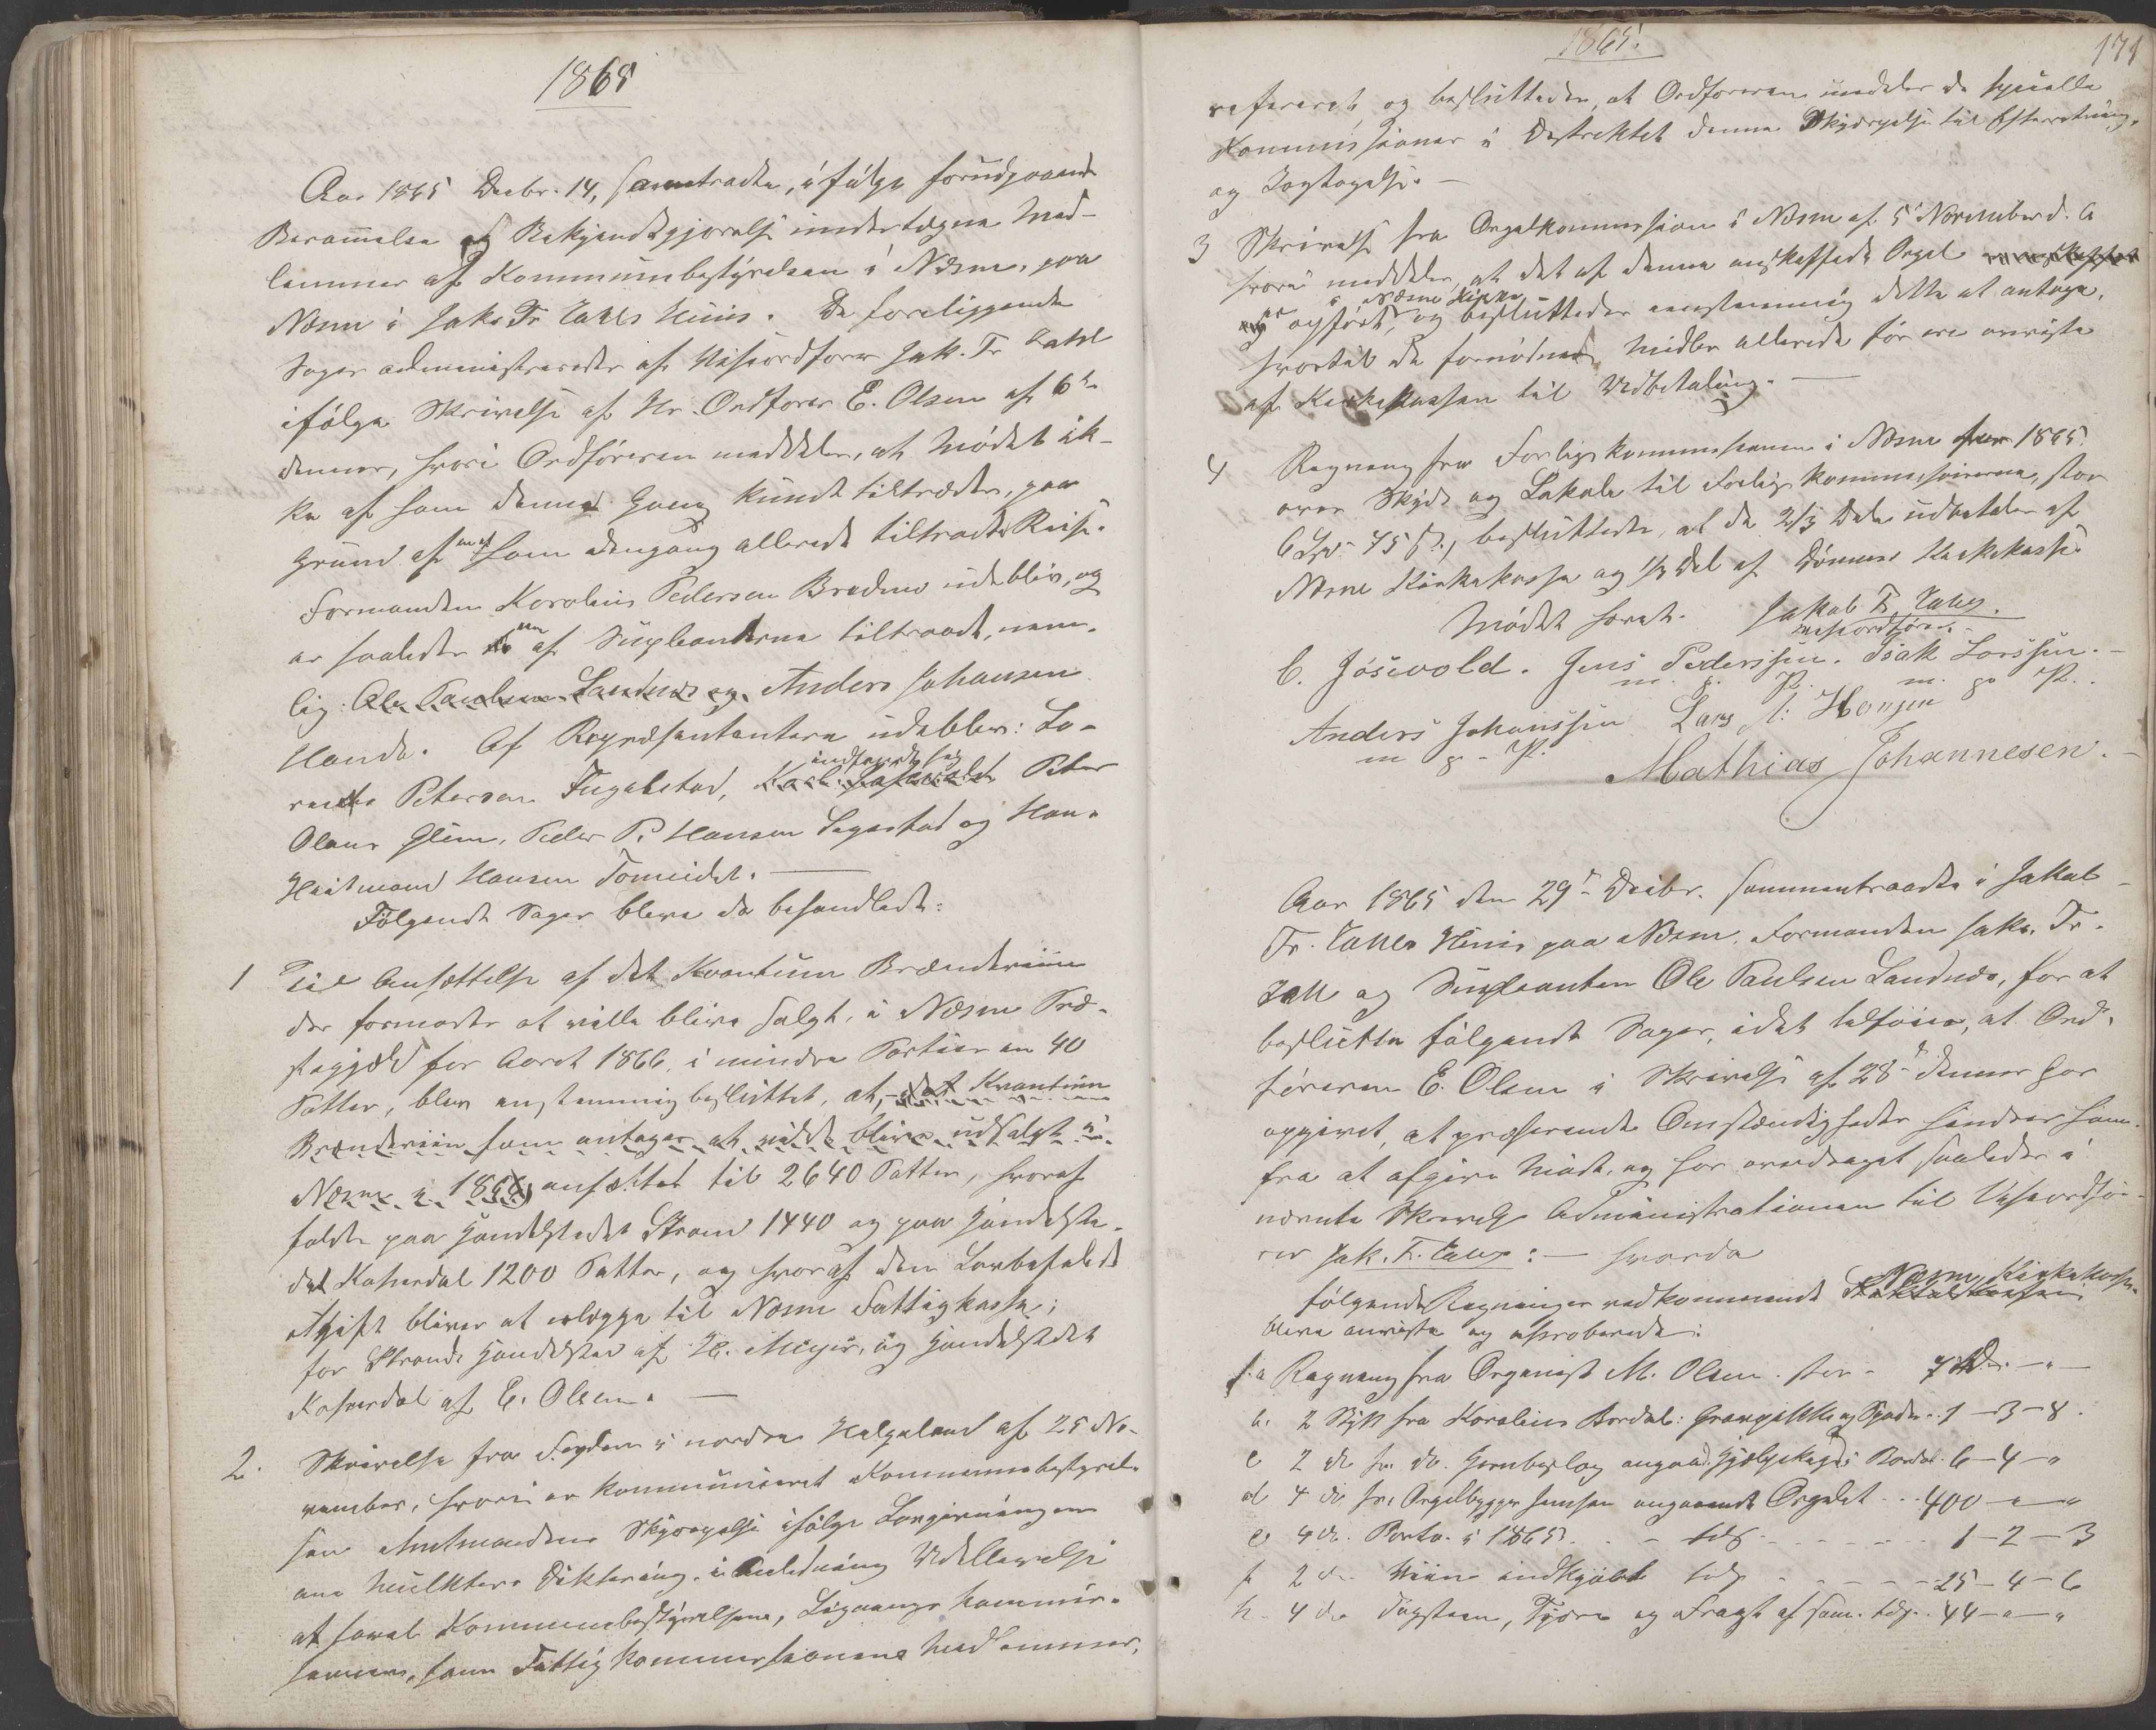 1865
Aar 1865 Decbr. 14, sammentraadte, ifølge forudgaaende
Berammelse og Bekjendtgjørelse undertegnede Med-
lemmer af Kommunebestyrelsen i Næsne, paa
Næsne i Jak. Fr. Zahls Huus. De foreliggende
Sager administreredes af Viseordfører Jak. Fr. Zahl
ifølge Skrivelse af Hr. Ordfører E. Olsen af 6te
dennes, hvori Ordføreren meddeler, at Mødet ik-
ke af ham denne Gang kunde tiltrædes, paa
Grund af en af ham dengang allerede tiltraadt Reise.
Formanden Karolius Pedersen Bradnes udeblev, og
er saaledes en af Supleanterne tiltraadt, nem-
lig: Ole Paulsen Sandnes og Anders Johansen
Handn. Af Repræsentantere udeblev: Lo-
rents Petersen Fugelstad, indfandt sig Peter
Olaus Glein, Peder P. Hansen Sagestad og Han-
Heitmand Hansen Tomeidet.
Følgende Sager bleve da behandlede:
1 Til Ansættelse af det Kvantum Brændeviin
der formodes at ville blive solgt, i Næsne Præ-
stegjæld for Aaret 1866, i mindre Partier en 40
Potter, blev enstemmig besluttet, at, det Kvantum
Brændeviin som antages at vilde blive udsalgt i
Næsne i 1866 ansættes til 2640 Potter, hvoraf
falder paa Handelstedet Strand 1440 og paa Handelste-
det Kopardal 1200 Potter, og hvoraf den Lovbefalede
Afgift bliver at erlægge til Næsne Fattigkasse;
for Strands Handelsted af H. Meyer, og Handelstedet
Kopardal af E. Olsen.
2. Skrivelse fra Fogden i nordre Helgeland af 25 No-
vember, hvori er kommuniceret Kommunebestyrel-
sen Amtmandens Skjrivelse ifølge Lovgivningen
om Mulkters Diktering, i Anledning Udeblevelse
at saavel Kommunebestyrelsens, Lignings kommis-
sionens, som Fattigkommissionens Medlemmer,
1865.
171
refereret, og besluttedes, at Ordføreren meddeler de specielle
Kommissioner i Distriktet denne Skrivelse til Efterretning
og Iagttagelse.
3 Skrivelse fra Orgelkommissionen i Næsne af 5 November d. A
hvori meddeles, at det af denne anskaffede Orgel
er i Næsne Kirke
opført, og besluttedes enstemmig dette at antage,
hvortil de fornødne Midler allerede før ere anviste
af Kirkekassen til Udbetaling.
4 Regning fra Forligskommissionen i Næsne for 1865
over Skyds og Lokale til Forligskommissionerne, stor
6 Spd 45 ß, besluttedes, at de 2/3 Dele udbetales af
Næsne Kirkekasse og 1/3 Del af Dønnes Kirkekasse
Mødet hævet. Jakob Fr. Zahl.
Viseordfører.
C. Jøsevold. Jens Pederssen. Isak Larssen.
m. p. P. m. p. P.
Anders Johanssen Lars A. Hansen
m p. P.
Mathias Johannesen.
Aar 1865 den 29de Decbr. sammentraadte i Jakob
Fr. Zahls Huus paa Næsne, Formanden Jak. Fr.
Zahl og Supleanten Ole Paulsen Sandnes, for at
beslutte følgende Sager, idet tilføies, at Ord-
føreren E. Olsen i Skrivelse af 28de dennes har
opgivet, at presserende Omstændigheder hindrer ham
fra at afgive Møde, og har overdraget saaledes i
nævnte Skrivelse Administrationen til Viseordfø-
rer Jak. Fr. Zahl: — hvorda
følgende Regninger vedkommende Næsne Kirkekasse
bleve anviste og approberede:
a Regning fra Organist M. Olsen stor 7 Spd. — " —
b. 2 Styk fra Karolius Bordal: Gravgikke og Spade 1 — 3 — 8.
c 2 do fra do. Jernbeslag angaaende Hjelpekaps Bordal. 6 — 4 — "
d 4 do fra Orgelbygger Jensen angaaende Orgelet . . . 400 — " — "
e 4 do. Porto i 1865 . . - tds - . - - - - . 1 — 2 — 3
f 2 do Viin indkjøbt tds . - - - - - 25 — 4 — 6
h. 4 do Tagsteen, Tjære og Fragt af sam. tds. 44 — " — "